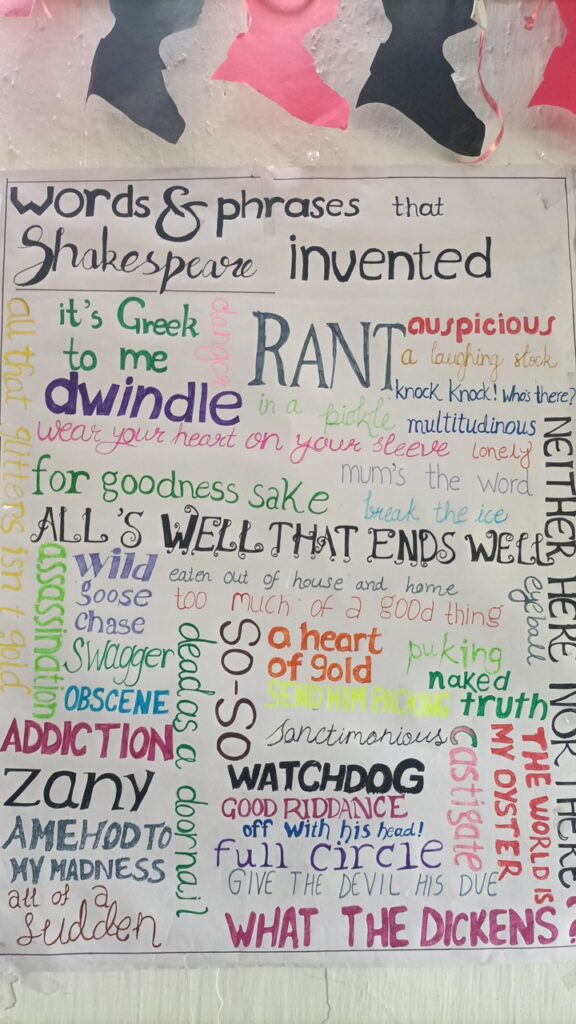 words & phrases that
Shakespeare invented
all that glitters isn't gold
it's Greek
to me
RANT
auspicious
a laughing stock
knock knock! Who's there?
dwindle
in a pickle
multitudinous
wear your heart on your sleeve
lonely
for goodness sake
mum's the word
break the ice
NEITHER HERE NOR THERE
ALL'S WELL THAT ENDS WELL
assassination
wild
goose
chase
eaten out of house and home
too much of a good thing
eyeball
swagger
dead as a doornail
SO-SO
a heart
of gold
puking
naked
truth
OBSCENE
SEND HIM PACKING
ADDICTION
sanctimonious
castigate
THE WORLD IS
MY OYSTER
zany
WATCHDOG
GOOD RIDDANCE
off with his head!
AMEHOD TO
MY MADNESS
full circle
GIVE THE DEVIL HIS DUE
all of a
sudden
WHAT THE DICKENS?